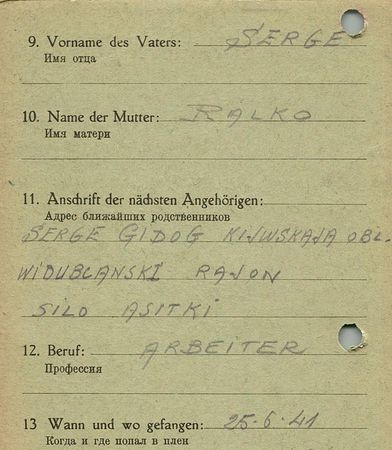 9. Vorname des Vaters: SERGE
Имя отца
10. Name der Mutter: RALKO
Имя матери
11. Anschrift der nächsten Angehörigen:
Адрес ближайших родственников
SERGE GIDOG KIJWSKAJA OBL.
WIDUBLANSKI RAJON
SILO ASITKI
12. Beruf: ARBEITER
Профессия
13 Wann und wo gefangen: 25-6-41
Когда и где попал в плен